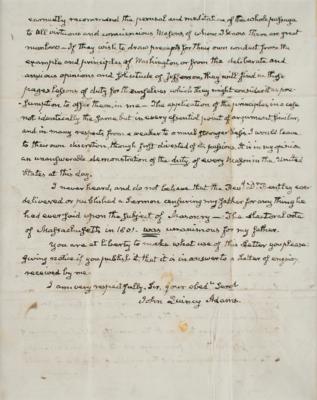 earnestly recommend the perusal and meditation of the whole passage
to all virtuous and conscientious Masons of whom I know there are great
numbers — If they wish to draw precepts for their own conduct from the
example and principles of Washington or from the deliberate and
anxious opinions and solicitude of Jefferson, they will find in those
pages lessons of duty for themselves which they might consider it as pre-
sumption to offer them, in me — The application of the principles, in a case
not identically the same, but in every essential point of argument similar,
and in many respects from a weaker to a much stronger basis I would leave
to their own discretion, though first divested of all passions. It is in my opinion
an unanswerable demonstration of the duty of every Mason in the United
States at this day.
I never heard, and do not believe that the Revd. Dr. Bentley ever
delivered or published a Sermon censuring my father for any thing he
had ever said upon the subject of Masonry — The electoral vote
of Massachusetts in 1801. was unanimous for my father.
You are at liberty to make what use of this Letter you please
giving notice if you publish it that it is in answer to a Letter of enquiry
received by me.
I am very respectfully, Sir, your obedt. Servt.
John Quincy Adams.